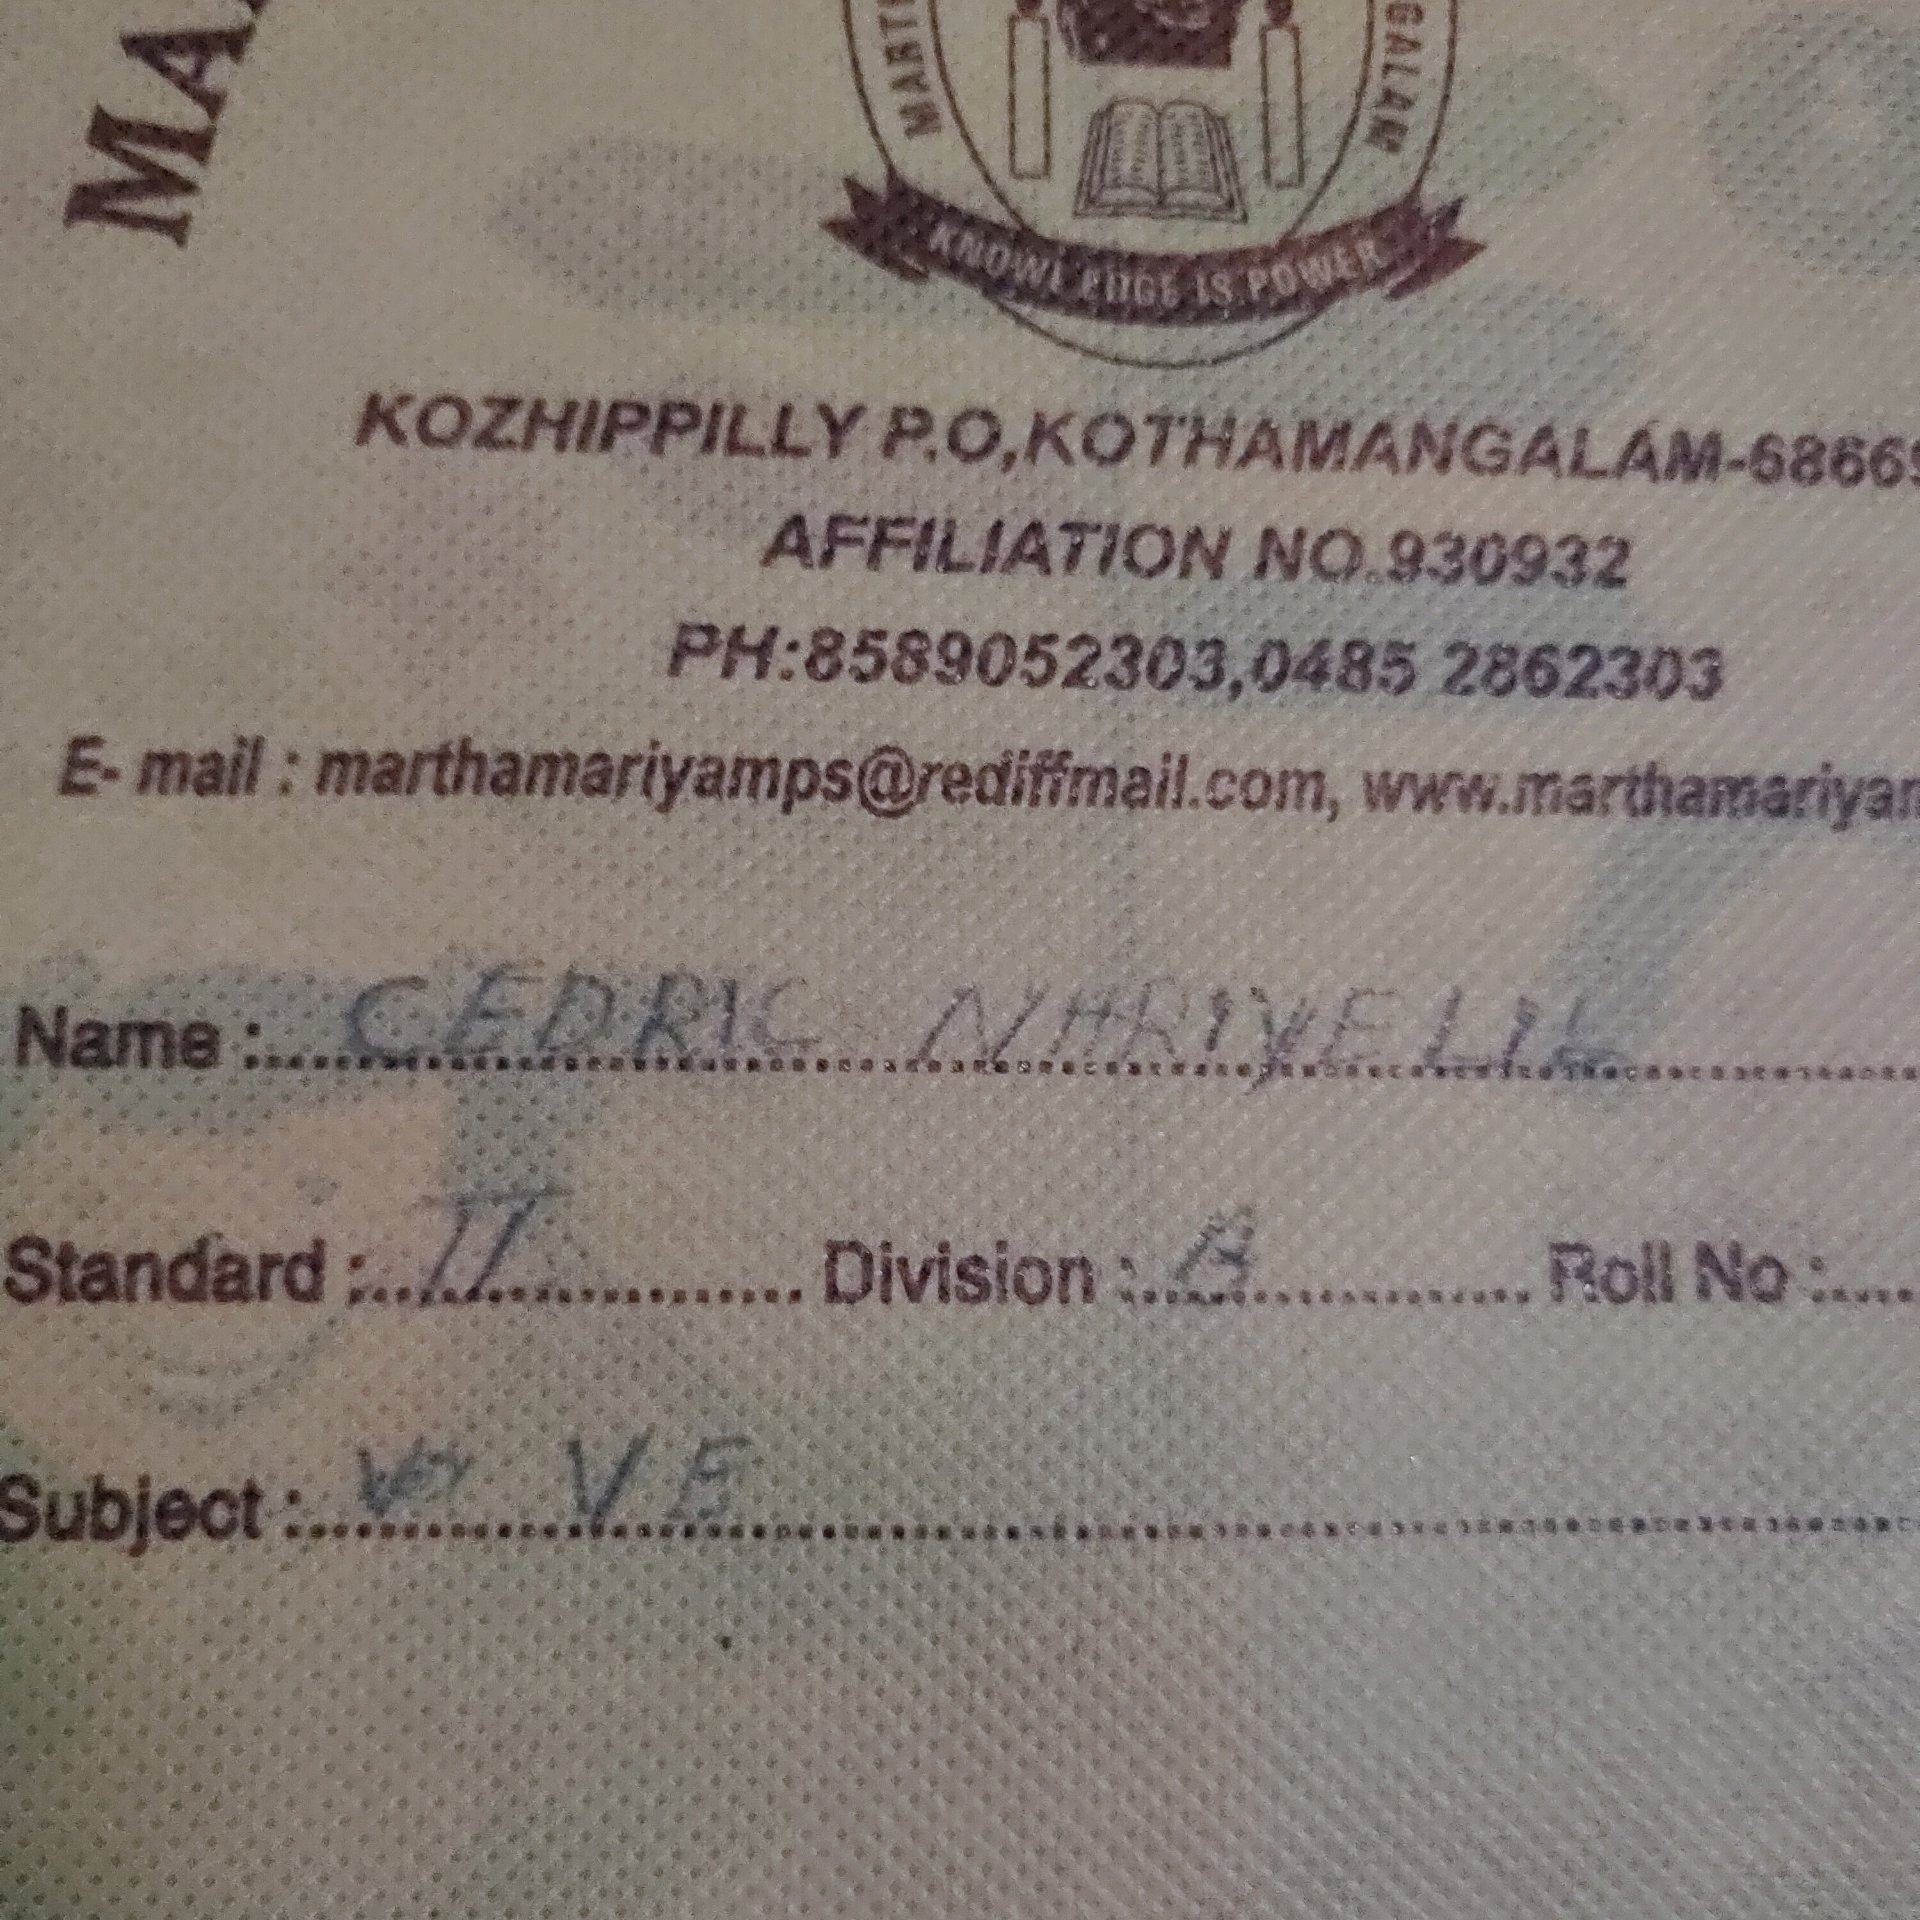 MA
MART
GALAM
KNOWLEDGE IS POWER
KOZHIPPILLY P.O,KOTHAMANGALAM-68669
AFFILIATION NO.930932
PH:8589052303,0485 2862303
E- mail : marthamariyamps@rediffmail.com, www.marthamariyam
Name : CEDRIC NARIYELIL
Standard : II Division : A Roll No :
Subject : VE